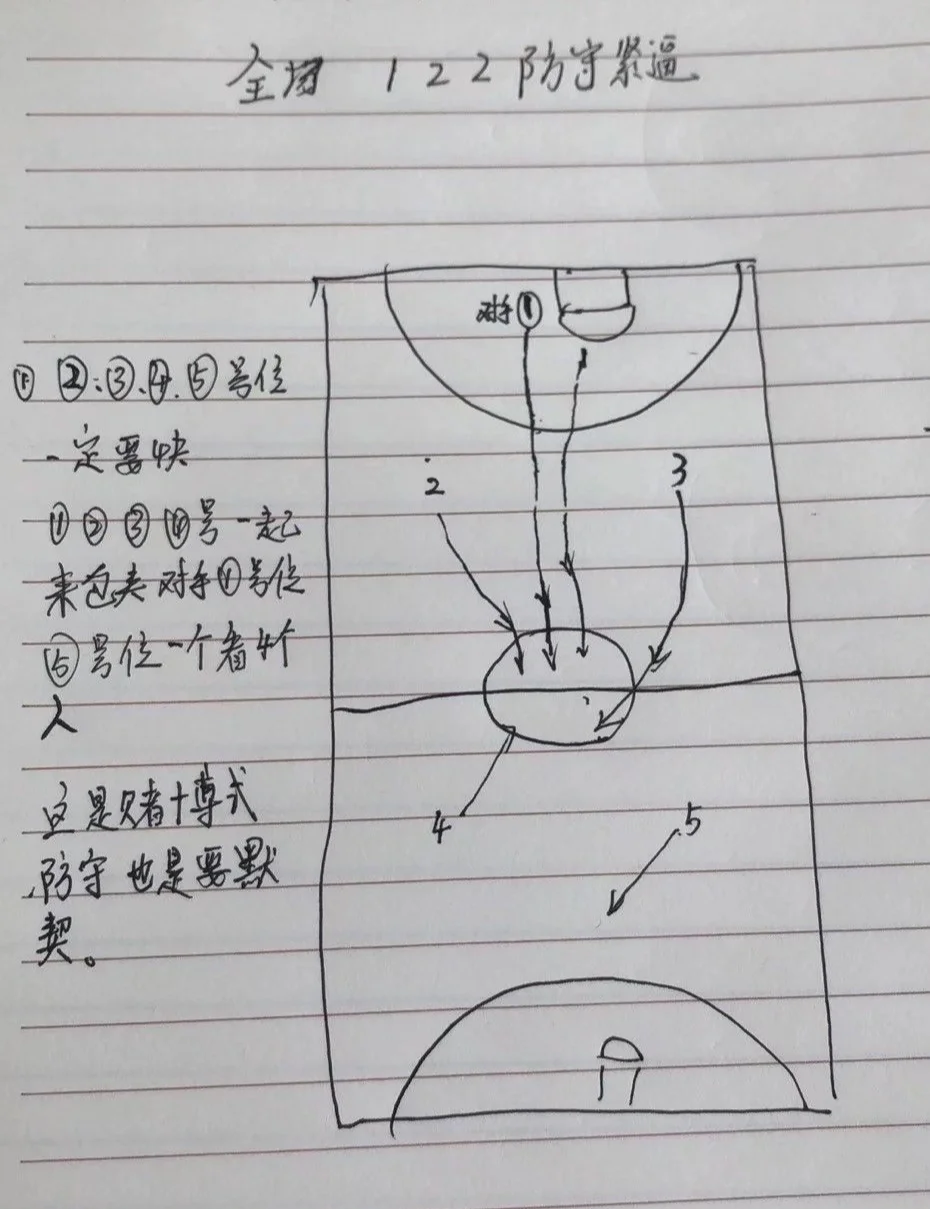 全场 1 2 2 防守紧逼
对手①
① ②、③、④、⑤号位
一定要快
①②③④号一起
来包夹对手①号位
⑤号位一个看4个
人
这是赌博式
防守也是要默
契。
2
3
4
5